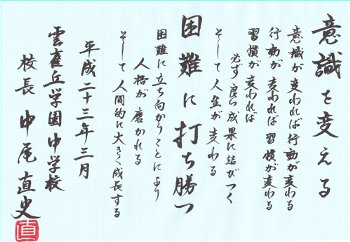 意識を変える
意識が変われば行動が変わる
行動が変われば習慣が変わる
習慣が変われば
必ず成果に結びつく
そして人生が変わる
困難に打ち勝つ
困難に立ち向かうことにより
人格が磨かれる
そして人間的に大きく成長する
平成二十三年三月
雲雀丘学園中学校
校長 中尾直史